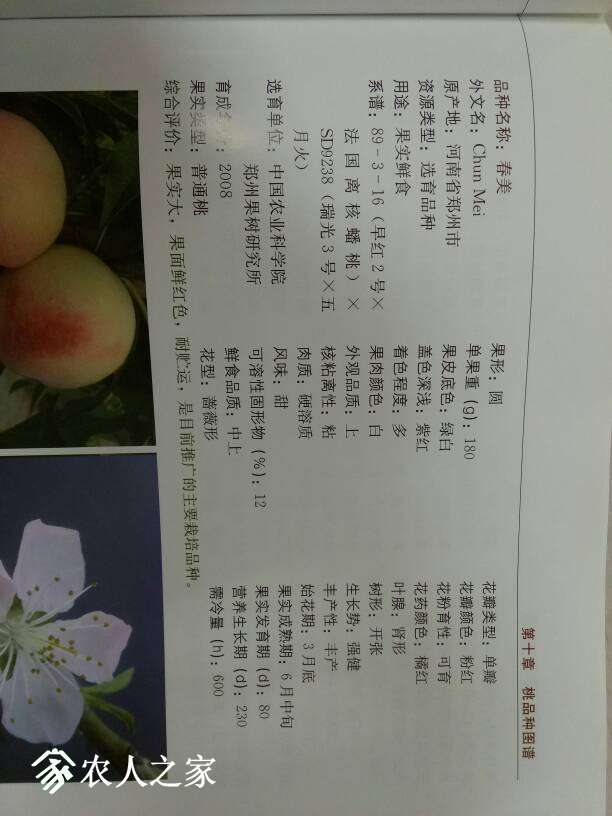 第十章 桃品种图谱
品种名称：春美
外文名：Chun Mei
原产地：河南省郑州市
资源类型：选育品种
用途：果实鲜食
系谱：89-3-16（早红2号×
法国离核蟠桃）×
SD9238（瑞光3号×五
月火）
选育单位：中国农业科学院
郑州果树研究所
育成年份：2008
果实类型：普通桃
果形：圆
单果重（g）：180
果皮底色：绿白
盖色深浅：紫红
着色程度：多
果肉颜色：白
外观品质：上
核粘离性：粘
肉质：硬溶质
风味：甜
可溶性固形物（%）：12
鲜食品质：中上
花型：蔷薇形
花瓣类型：单瓣
花瓣颜色：粉红
花粉育性：可育
花药颜色：橘红
叶腺：肾形
树形：开张
生长势：强健
丰产性：丰产
始花期：3月底
果实成熟期：6月中旬
果实发育期（d）：80
营养生长期（d）：230
需冷量（h）：600
综合评价：果实大，果面鲜红色，耐贮运，是目前推广的主要栽培品种。
农人之家